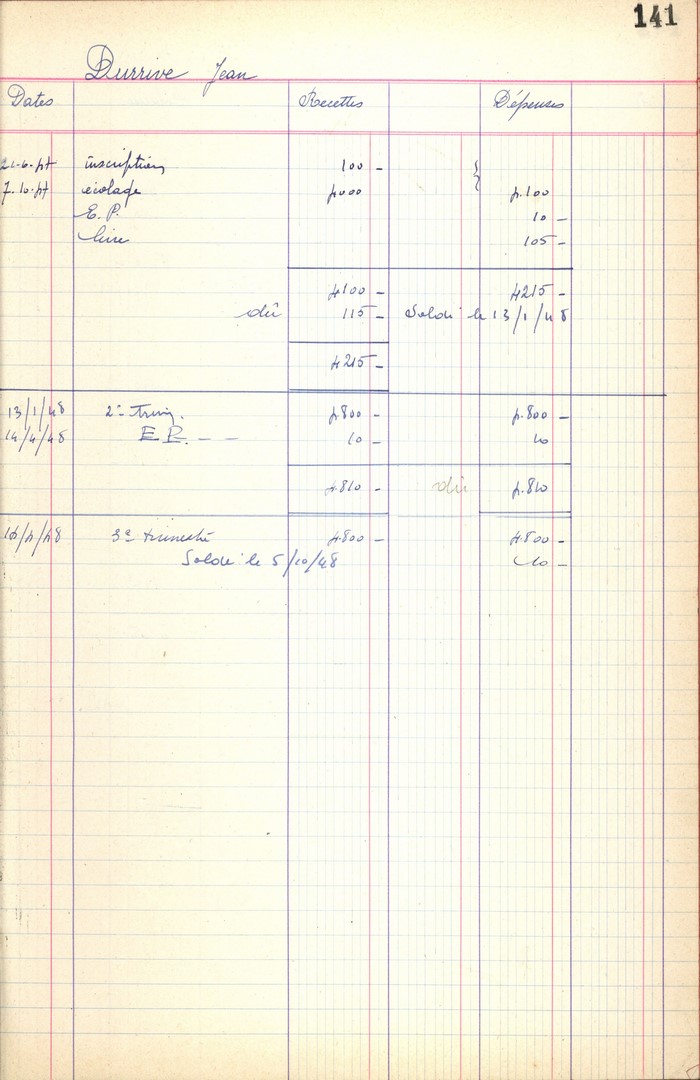 141
Durrive Jean
Dates Recettes Dépenses
21-6-47 inscription 100 -
7-10-47 écolage 4.000 4.100
E. P. 10 -
livre 105 -
4100 - 4215 -
dû 115 - Soldé le 13/1/48
4215 -
13/1/48 2e Trim. 4.800 - 4.800 -
14/4/48 E P. - - 10 - 10
4.810 - dû 4.810
16/4/48 3e trimestre 4.800 - 4.800 -
Soldé le 5/10/48 10 -